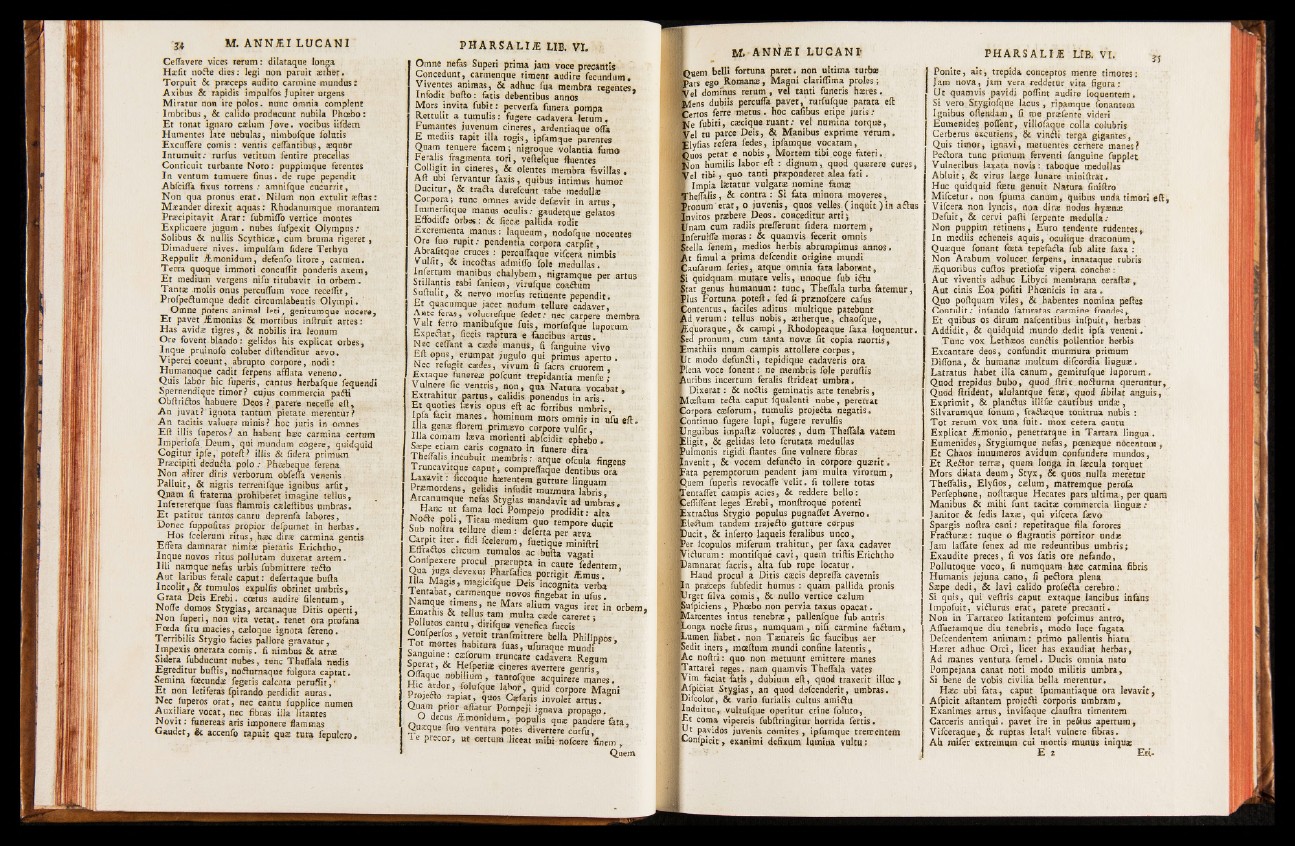 34 M. ANNÆI LUCANI
Ceſſavere vices rerum: dilataque longa
Hæſit nocte dies: legi non paruit æther.
Torpuit & præceps audito carmine mundus:
Axibus & rapidis impulſos Jupiter urgens
Miratur non ire polos. nunc omnia complent
Imbribus, & calido producunt nubila Phœbo:
Et tonat ignaro cælum Jove. vocibus iiſdem
Humentes late nebulas, nimboſque ſolutis
Excuſſere comis: ventis ceſſantibus, æquor
Intumuit: rurſus vetitum ſentire procellas
Conticuit turbante Noto: puppimque ferentes
In ventum tumuere ſinus. de rupe pependit
Abſciſſa fixus torrens: amniſque cucurrit,
Qua non pronus erat. Nilum non extulit æſtas:
Mæander direxit aquas: Rhodanumque morantem
Præcipitavit Arar: ſubmiſſo vertice montes
Explicuere jugum. nubes ſuſpexit Olympus:
Solibus & nullis Scythicæ, cum bruma rigeret,
Dimaduere nives. impulſam ſidere Tethyn
Reppulit Æmonidum, defenſo litore, carmen.
Terra quoque immoti concuſſit ponderis axem,
Et medium vergens niſu titubavit in orbem.
Tantæ molis onus percuſſum voce receſſit,
Proſpectumque dedit circumlabentis Olympi.
Omne potens animal leti, genitumque nocere,
Et pavet Æmonias & mortibus inſtruit artes:
Has avidæ tigres, & nobilis ira leonum
Ore fovent blando: gelidos his explicat orbes,
Inque pruinoſo coluber diſtenditur arvo.
Viperei coeunt, abrupto corpore, nodi:
Humanoque cadit ſerpens afflata veneno.
Quis labor hic ſuperis, cantus herbaſque ſequendi
Spernendique timor? cujus commercia pacti
Obſtrictos habuere Deos? parere neceſſe eſt,
An juvat? ignota tantum pietate merentur?
An tacitis valuere minis? hoc juris in omnes
Eſt illis ſuperos? an habent hæc carmina certum
Imperioſa Deum, qui mundum cogere, quidquid
Cogitur ipſe, poteſt? illis & ſidera primum
Præcipiti deducta polo: Phœbeque ſerena
Non aliter diris verborum obſeſſa venenis
Palluit, & nigris terreniſque ignibus arſit,
Quam ſi fraterna prohiberet imagine tellus,
Inſereretque ſuas flammis cæleſtibus umbras.
Et patitur tantos cantu depreſſa labores,
Donec ſuppoſitas propior deſpumet in herbas.
Hos ſcelerum ritus, hæc diræ carmina gentis
Effera damnarat nimiæ pietatis Erichtho,
Inque novos ritus pollutam duxerat artem.
Illi namque nefas urbis ſubmittere tecto
Aut laribus ferale caput: deſertaque buſta
Incolit, & tumulos expulſis obtinet umbris,
Grata Deis Erebi. cœtus audire ſilentum,
Noſſe domos Stygias, arcanaque Ditis operti,
Non ſuperi, non vita vetat. tenet ora profana
Fœda ſitu macies, cæloque ignota ſereno.
Terribilis Stygio facies pallore gravatur,
Impexis onerata comis. ſi nimbus & atræ
Sidera ſubducunt nubes, tunc Theſſala nudis
Egreditur buſtis, nocturnaque fulgura captat.
Semina fœcundæ ſegetis calcata peruſſit,
Et non letiferas ſpirando perdidit auras.
Nec ſuperos orat, nec cantu ſupplice numen
Auxiliare vocat, nec fibras illa litantes
Novit: funereas aris imponere flammas
Gaudet, & accenſo rapuit quæ tura ſepulcro.
PHARSALIÆ LIB. VI.
Omne nefas Superi prima jam voce precantis
Concedunt, carmenque timent audire ſecundum.
Viventes animas, & adhuc ſua membra regentes,
Infodit buſto: fatis debentibus annos
Mors invita ſubit: perverſa funera pompa
Rettulit a tumulis: fugere cadavera letum.
Fumantes juvenum cineres, ardentiaque oſſa
E mediis rapit illa rogis, ipſamque parentes
Quam tenuere facem; nigroque volantia fumo
Feralis fragmenta tori, veſteſque fluentes
Colligit in cineres, & olentes membra favillas.
Aſt ubi ſervantur ſaxis, quibus intimus humor
Ducitur, & tracta dureſcunt tabe medullæ
Corpora; tunc omnes avide deſævit in artus,
Immerſitque manus oculis: gaudetque gelatos
Effodiſſe orbes: & ſiccæ pallida rodit
Excrementa manus: laqueum, nodoſque nocentes
Ore ſuo rupit: pendentia corpora carpſit,
Abraſitque cruces: percuſſaque viſcera nimbis
Vulſit, & incoctas admiſſo ſole medullas.
Inſertum manibus chalybem, nigramque per artus
Stillantis tabi ſaniem, viruſque coactum
Suſtulit, & nervo morſus retinente pependit.
Et quacumque jacet nudum tellure cadaver,
Ante feras, volucreſque ſedet: nec carpere membra
Vult ferro manibuſque ſuis, morſuſque luporum
Expectat, ſiccis raptura e faucibus artus.
Nec ceſſant a cæde manus, ſi ſanguine vivo
Eſt opus, erumpat jugulo qui primus aperto.
Nec refugit cædes, vivum ſi ſacra cruorem,
Extaque funereæ poſcunt trepidantia menſæ;
Vulnere ſic ventris, non, qua Natura vocabat,
Extrahitur partus, calidis ponendus in aris.
Et quoties ſævis opus eſt ac fortibus umbris,
Ipſa facit manes. hominum mors omnis in uſu eſt.
Illa genæ florem primævo corpore vulſit,
Illa comam læva morienti abſcidit ephebo.
Sæpe etiam caris cognato in funere dira
Theſſalis incubuit membris: atque oſcula fingens
Truncavitque caput, compreſſaque dentibus ora
Laxavit: ſiccoque hærentem gutture linguam
Præmordens, gelidis infudit murmura labris,
Arcanumque nefas Stygias mandavit ad umbras.
Hanc ut fama loci Pompejo prodidit: alta
Nocte poli, Titan medium quo tempore ducit
Sub noſtra tellure diem: deſerta per arva
Carpit iter. fidi ſcelerum, ſuetique miniſtri
Effractos circum tumulos ac buſta vagati
Conſpexere procul prærupta in caute ſedentem,
Qua juga devexus Pharſalica porrigit Æmus.
Illa Magis, magiciſque Deis incognita verba
Tentabat, carmenque novos fingebat in uſus.
Namque timens, ne Mars alium vagus iret in orbem,
Emathis & tellus tam multa cæde careret;
Pollutos cantu, diriſque venefica ſuccis
Conſperſos, vetuit tranſmittere bella Philippos,
Tot mortes habitura ſuas, uſuraque mundi
Sanguine: cæſorum truncare cadavera Regum
Sperat, & Heſperiæ cineres avertere gentis,
Oſſaque nobilium, tantoſque acquirere manes.
Hic ardor, ſoluſque labor, quid corpore Magni
Projecto rapiat, quos Cæſaris involet artus.
Quam prior affatur Pompeji ignava propago.
O decus Æmonidum, populis quæ pandere fata,
Quæque ſuo ventura potes divertere curſu,
Te precor, ut certum liceat mihi noſcere finem,
Quem
M. ANNÆI LUCANI
Quem belli fortuna paret. non ultima turbæ
Pars ego Romanæ, Magni clariſſima proles;
Vel dominus rerum, vel tanti funeris hæres.
Mens dubiis percuſſa pavet, rurſuſque parata eſt
Certos ferre metus. hoc caſibus eripe juris:
Ne ſubiti, cæcique ruant: vel numina torque,
Vel tu parce Deis, & Manibus exprime verum.
Elyſias reſera ſedes, ipſamque vocatam,
Quos petat e nobis, Mortem tibi coge fateri.
Non humilis labor eſt: dignum, quod quærere cures,
Vel tibi, quo tanti præponderet alea fati.
Impia lætatur vulgatæ nomine famæ
Theſſalis, & contra: Si fata minora moveres,
Pronum erat, o juvenis, quos velles (inquit) in actus
Invitos præbere Deos. conceditur arti;
Unam cum radiis preſſerunt ſidera mortem,
Inſeruiſſe moras: & quamvis fecerit omnis
Stella ſenem, medios herbis abrumpimus annos.
At ſimul a prima deſcendit origine mundi
Cauſarum ſeries, atque omnia fata laborant,
Si quidquam mutare velis, unoque ſub ictu
Stat genus humanum: tunc, Theſſala turba fatemur,
Plus Fortuna poteſt. ſed ſi prænoſcere caſus
Contentus, faciles aditus multique patebunt
Ad verum: tellus nobis, ætherque, chaoſque,
Æquoraque, & campi, Rhodopeaque ſaxa loquentur.
Sed pronum, cum tanta novæ ſit copia mortis,
Emathiis unum campis attollere corpus,
Ut modo defuncti, tepidique cadaveris ora
Plena voce ſonent: ne membris ſole peruſtis
Auribus incertum feralis ſtrideat umbra.
Dixerat: & noctis geminatis arte tenebris,
Mœſtum tecta caput ſqualenti nube, pererrat
Corpora cæſorum, tumulis projecta negatis.
Continuo fugere lupi, fugere revulſis
Unguibus impaſtæ volucres, dum Theſſala vatem
Eligit, & gelidas leto ſcrutata medullas
Pulmonis rigidi ſtantes ſine vulnere fibras
Invenit, & vocem defuncto in corpore quærit.
Fata peremptorum pendent jam multa virorum,
Quem ſuperis revocaſſe velit. ſi tollere totas
Tentaſſet campis acies, & reddere bello:
Ceſſiſſent leges Erebi, monſtroque potenti
Extractus Stygio populus pugnaſſet Averno.
Electum tandem trajecto gutture corpus
Ducit, & inſerto laqueis feralibus unco,
Per ſcopulos miſerum trahitur, per ſaxa cadaver
Victurum: montiſque cavi, quem triſtis Erichtho
Damnarat ſacris, alta ſub rupe locatur.
Haud procul a Ditis cæcis depreſſa cavernis
In præceps ſubſedit humus: quam pallida pronis
Urget ſilva comis, & nullo vertice cælum
Suſpiciens, Phœbo non pervia taxus opacat.
Marcentes intus tenebræ, pallenſque ſub antris
Longa nocte ſitus, numquam, niſi carmine factum,
Lumen habet. non Tænareis ſic faucibus aer
Sedit iners, mœſtum mundi confine latentis,
Ac noſtri: quo non metuunt emittere manes
Tartarei reges. nam quamvis Theſſala vates
Vim faciat fatis, dubium eſt, quod traxerit illuc,
Aſpiciat Stygias, an quod deſcenderit, umbras.
Diſcolor, & vario furialis cultus amictu
Induitur, vultuſque operitur crine ſoluto,
Et coma vipereis ſubſtringitur horrida ſertis.
Ut pavidos juvenis comites, ipſumque trementem
Conſpicit, exanimi defixum lumina vultu:
PHARSALIÆ LIB. VI. 35
Ponite, ait, trepida conceptos mente timores:
Jam nova, jam vera reddetur vita figura:
Ut quamvis pavidi poſſint audire loquentem.
Si vero Stygioſque lacus, ripamque ſonantem
Ignibus oſtendam, ſi me præſente videri
Eumenides poſſent, villoſaque colla colubris
Cerberus excutiens, & vincti terga gigantes,
Quis timor, ignavi, metuentes cernere manes?
Pectora tunc primum ferventi ſanguine ſupplet
Vulneribus laxata novis: taboque medullas
Abluit; & virus large lunare miniſtrat.
Huc quidquid fœtu genuit Natura ſiniſtro
Miſcetur. non ſpuma canum, quibus unda timori eſt,
Viſcera non lyncis, non diræ nodus hyænæ
Defuit, & cervi paſti ſerpente medullæ:
Non puppim retinens, Euro tendente rudentes,
In mediis echeneis aquis, oculique draconum,
Quæque ſonant fœta tepefacta ſub alite ſaxa:
Non Arabum volucer ſerpens, innataque rubris
Æquoribus cuſtos precioſæ vipera conchæ:
Aut viventis adhuc Libyci membrana ceraſtæ,
Aut cinis Eoa poſiti Phœnicis in ara.
Quo poſtquam viles, & habentes nomina peſtes
Contulit: infando ſaturatas carmine frondes,
Et quibus os dirum naſcentibus inſpuit, herbas
Addidit, & quidquid mundo dedit ipſa veneni.
Tunc vox Lethæos cunctis pollentior herbis
Excantare deos, confundit murmura primum
Diſſona, & humanæ multum diſcordia linguæ.
Latratus habet illa canum, gemituſque luporum.
Quod trepidus bubo, quod ſtrix nocturna queruntur,
Quod ſtrident, ululantque feræ, quod ſibilat anguis,
Exprimit, & planctus illiſæ cautibus undæ,
Silvarumque ſonum, fractæque tonitrua nubis:
Tot rerum vox una fuit. mox cetera cantu
Explicat Æmonio, penetratque in Tartara lingua.
Eumenides, Stygiumque nefas, pœnæque nocentum,
Et Chaos innumeros avidum confundere mundos,
Et Rector terræ, quem longa in ſæcula torquet
Mors dilata deum, Styx, & quos nulla meretur
Theſſalis, Elyſios, cælum, matremque peroſa
Perſephone, noſtræque Hecates pars ultima, per quam
Manibus & mihi ſunt tacitæ commercia linguæ:
Janitor & ſedis laxæ, qui viſcera ſævo
Spargis noſtra cani: repetitaque fila ſorores
Fracturæ: tuque o flagrantis portitor undæ
Jam laſſate ſenex ad me redeuntibus umbris;
Exaudite preces, ſi vos ſatis ore nefando,
Pollutoque voco, ſi numquam hæc carmina fibris
Humanis jejuna cano, ſi pectora plena
Sæpe dedi, & lavi calido proſecta cerebro:
Si quis, qui veſtris caput extaque lancibus infans
Impoſuit, victurus erat, parete precanti.
Non in Tartareo latitantem poſcimus antro,
Aſſuetamque diu tenebris, modo luce fugata
Deſcendentem animam: primo pallentis hiatu
Hæret adhuc Orci, licet has exaudiat herbas,
Ad manes ventura ſemel. Ducis omnia nato
Pompejana canat noti modo militis umbra,
Si bene de vobis civilia bella merentur.
Hæc ubi fata, caput ſpumantiaque ora levavit,
Aſpicit aſtantem projecti corporis umbram,
Exanimes artus, inviſaque clauſtra timentem
Carceris antiqui. pavet ire in pectus apertum,
Viſceraque, & ruptas letali vulnere fibras.
Ah miſer extremum cui mortis munus iniquæ
E 2 Eri-